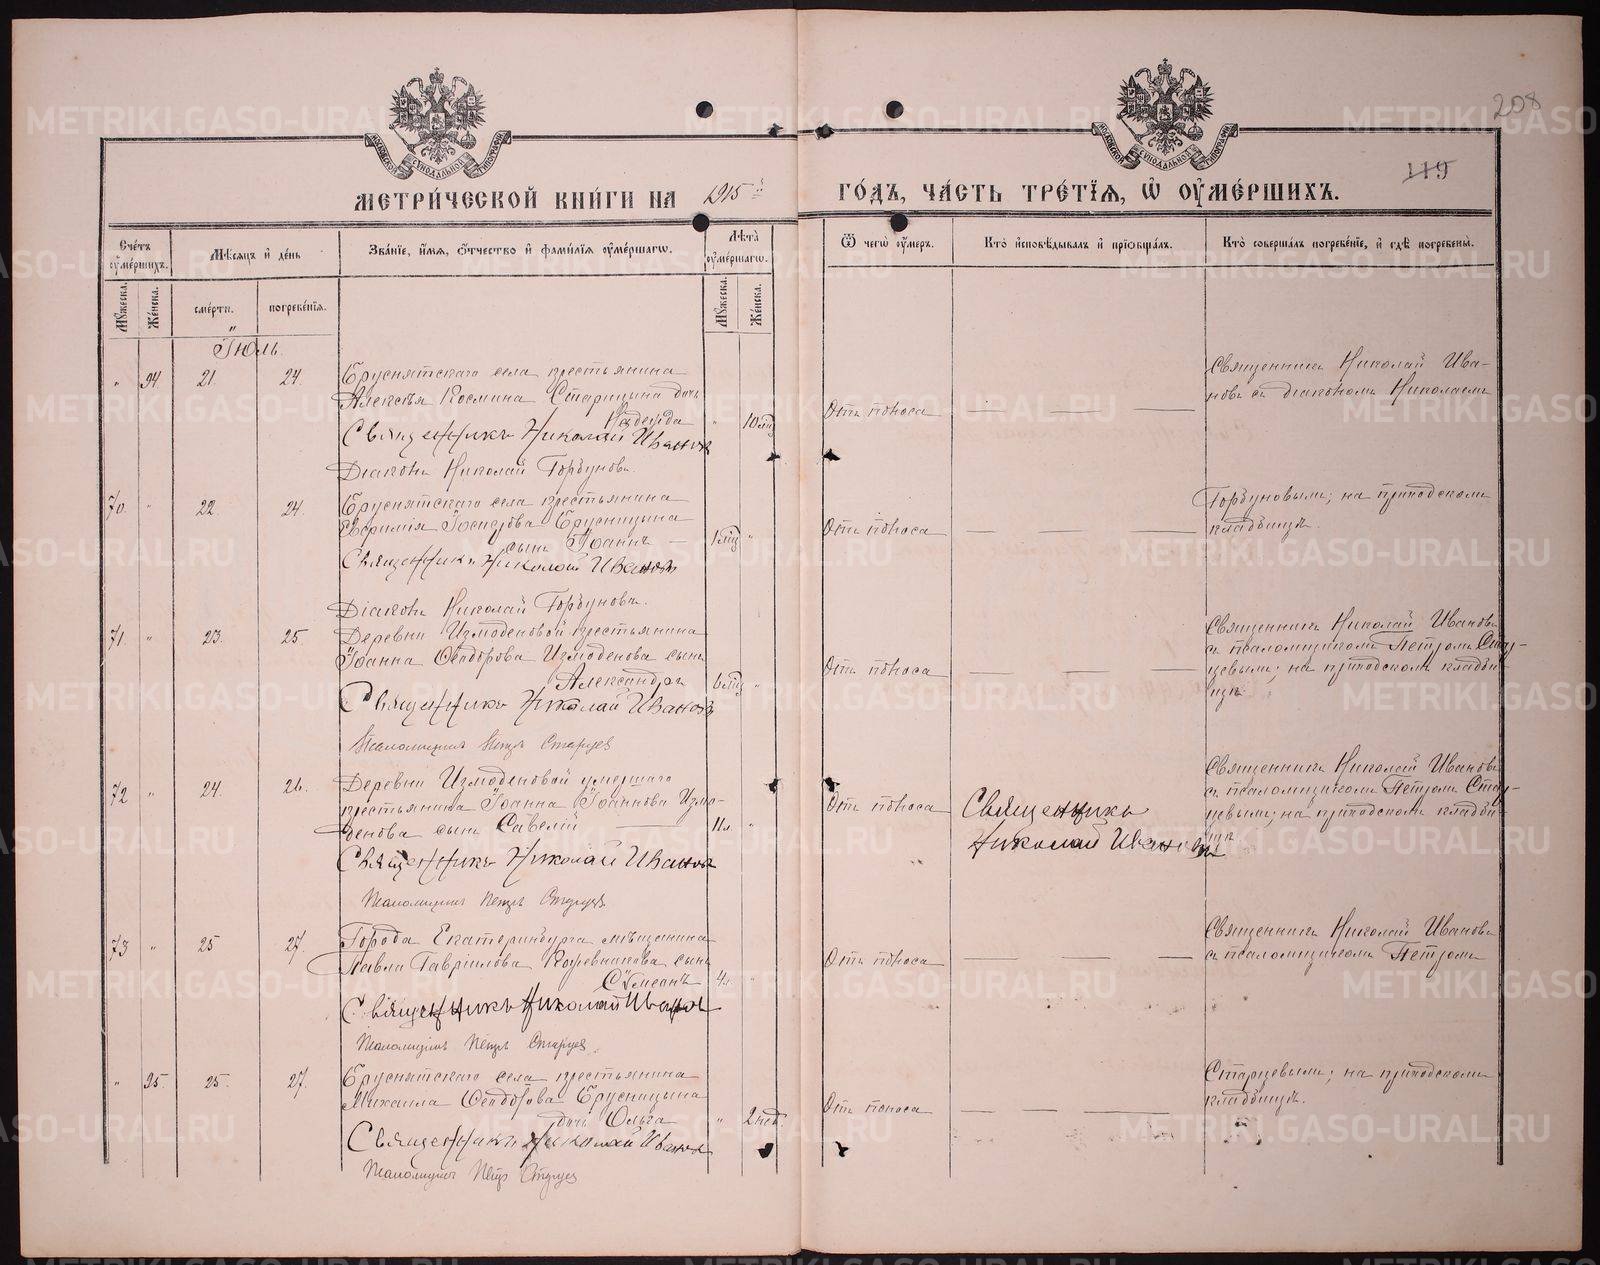 208
119
МЕТРИ́ЧЕСКОЙ КНИ́ГИ НА 1915й ГО́ДЪ, ЧА́СТЬ ТРЕ́ТІЯ, Ѡ҆ ОУ҆МЕ́РШИХЪ.
Сче́тъ оу҆ме́ршихъ.
Мꙋ́жеска.
Же́нска.
Мѣ́сяцъ и҆ де́нь
сме́рти.
погребе́нїя.
Зва́нїе, и҆́мя, ѻ҆́тчество и҆ фами́лїя оу҆ме́ршагѡ.
Лѣ́та оу҆ме́ршагѡ.
Мꙋ́жеска.
Же́нска.
Ѿ чегѡ̀ оу҆́меръ.
Кто̀ и҆сповѣ́дывалъ и҆ прїѡбща́лъ.
Кто̀ соверша́лъ погребе́нїе, и҆ гдѣ̀ погребены̀.
Іюль.
" 94. 21. 24. Бруснятскаго села крестьянина
Алексѣя Космина Старицына дочь
Надежда " 10 мц.
Священникъ Николай Ивановъ
Діаконъ Николай Горбуновъ.
Отъ поноса — — —
Священникъ Николай Ива-
новъ съ діакономъ Николаемъ
70. " 22 24. Бруснятскаго села крестьянина
Евфимія Іосифова Брусницына
сынъ Іоаннъ — 1 мц. "
Священникъ Николай Ивановъ
Діаконъ Николай Горбуновъ.
Отъ поноса — — —
Горбуновымъ; на приходскомъ
кладбищѣ.
71. " 23. 25. Деревни Измоденовой крестьянина
Іоанна Ѳеодорова Измоденова сынъ
Александръ 6 мц. "
Священникъ Николай Ивановъ
Псаломщикъ Петръ Старцев
Отъ поноса — — —
Священникъ Николай Ивановъ
съ псаломщикомъ Петромъ Стар-
цевымъ; на приходскомъ кладби-
щѣ.
72 " 24. 26. Деревни Измоденовой умершаго
крестьянина Іоанна Іоаннова Измо-
денова сынъ Савелій — 11 л. "
Священникъ Николай Ивановъ
Псаломщикъ Петръ Старцев
Отъ поноса
Священникъ
Николай Ивановъ
Священникъ Николай Ивановъ
съ псаломщикомъ Петромъ Стар-
цевымъ; на приходскомъ кладби-
щѣ
73 " 25 27. Города Екатеринбурга мѣщанина
Павла Гавріилова Кожевникова сынъ
Сѵмеонъ 4 л. "
Священникъ Николай Ивановъ
Псаломщикъ Петръ Старцев.
Отъ поноса — — —
Священникъ Николай Ивановъ
съ псаломщикомъ Петромъ
" 95. 25. 27. Бруснятскаго села крестьянина
Михаила Ѳеодорова Брусницына
дочь Ольга " 2 нед.
Священникъ Николай Ивановъ
Псаломщикъ Петр Старцев
Отъ поноса — — —
Старцевымъ; на приходскомъ
кладбищѣ.
METRIKI.GASO-URAL.RU